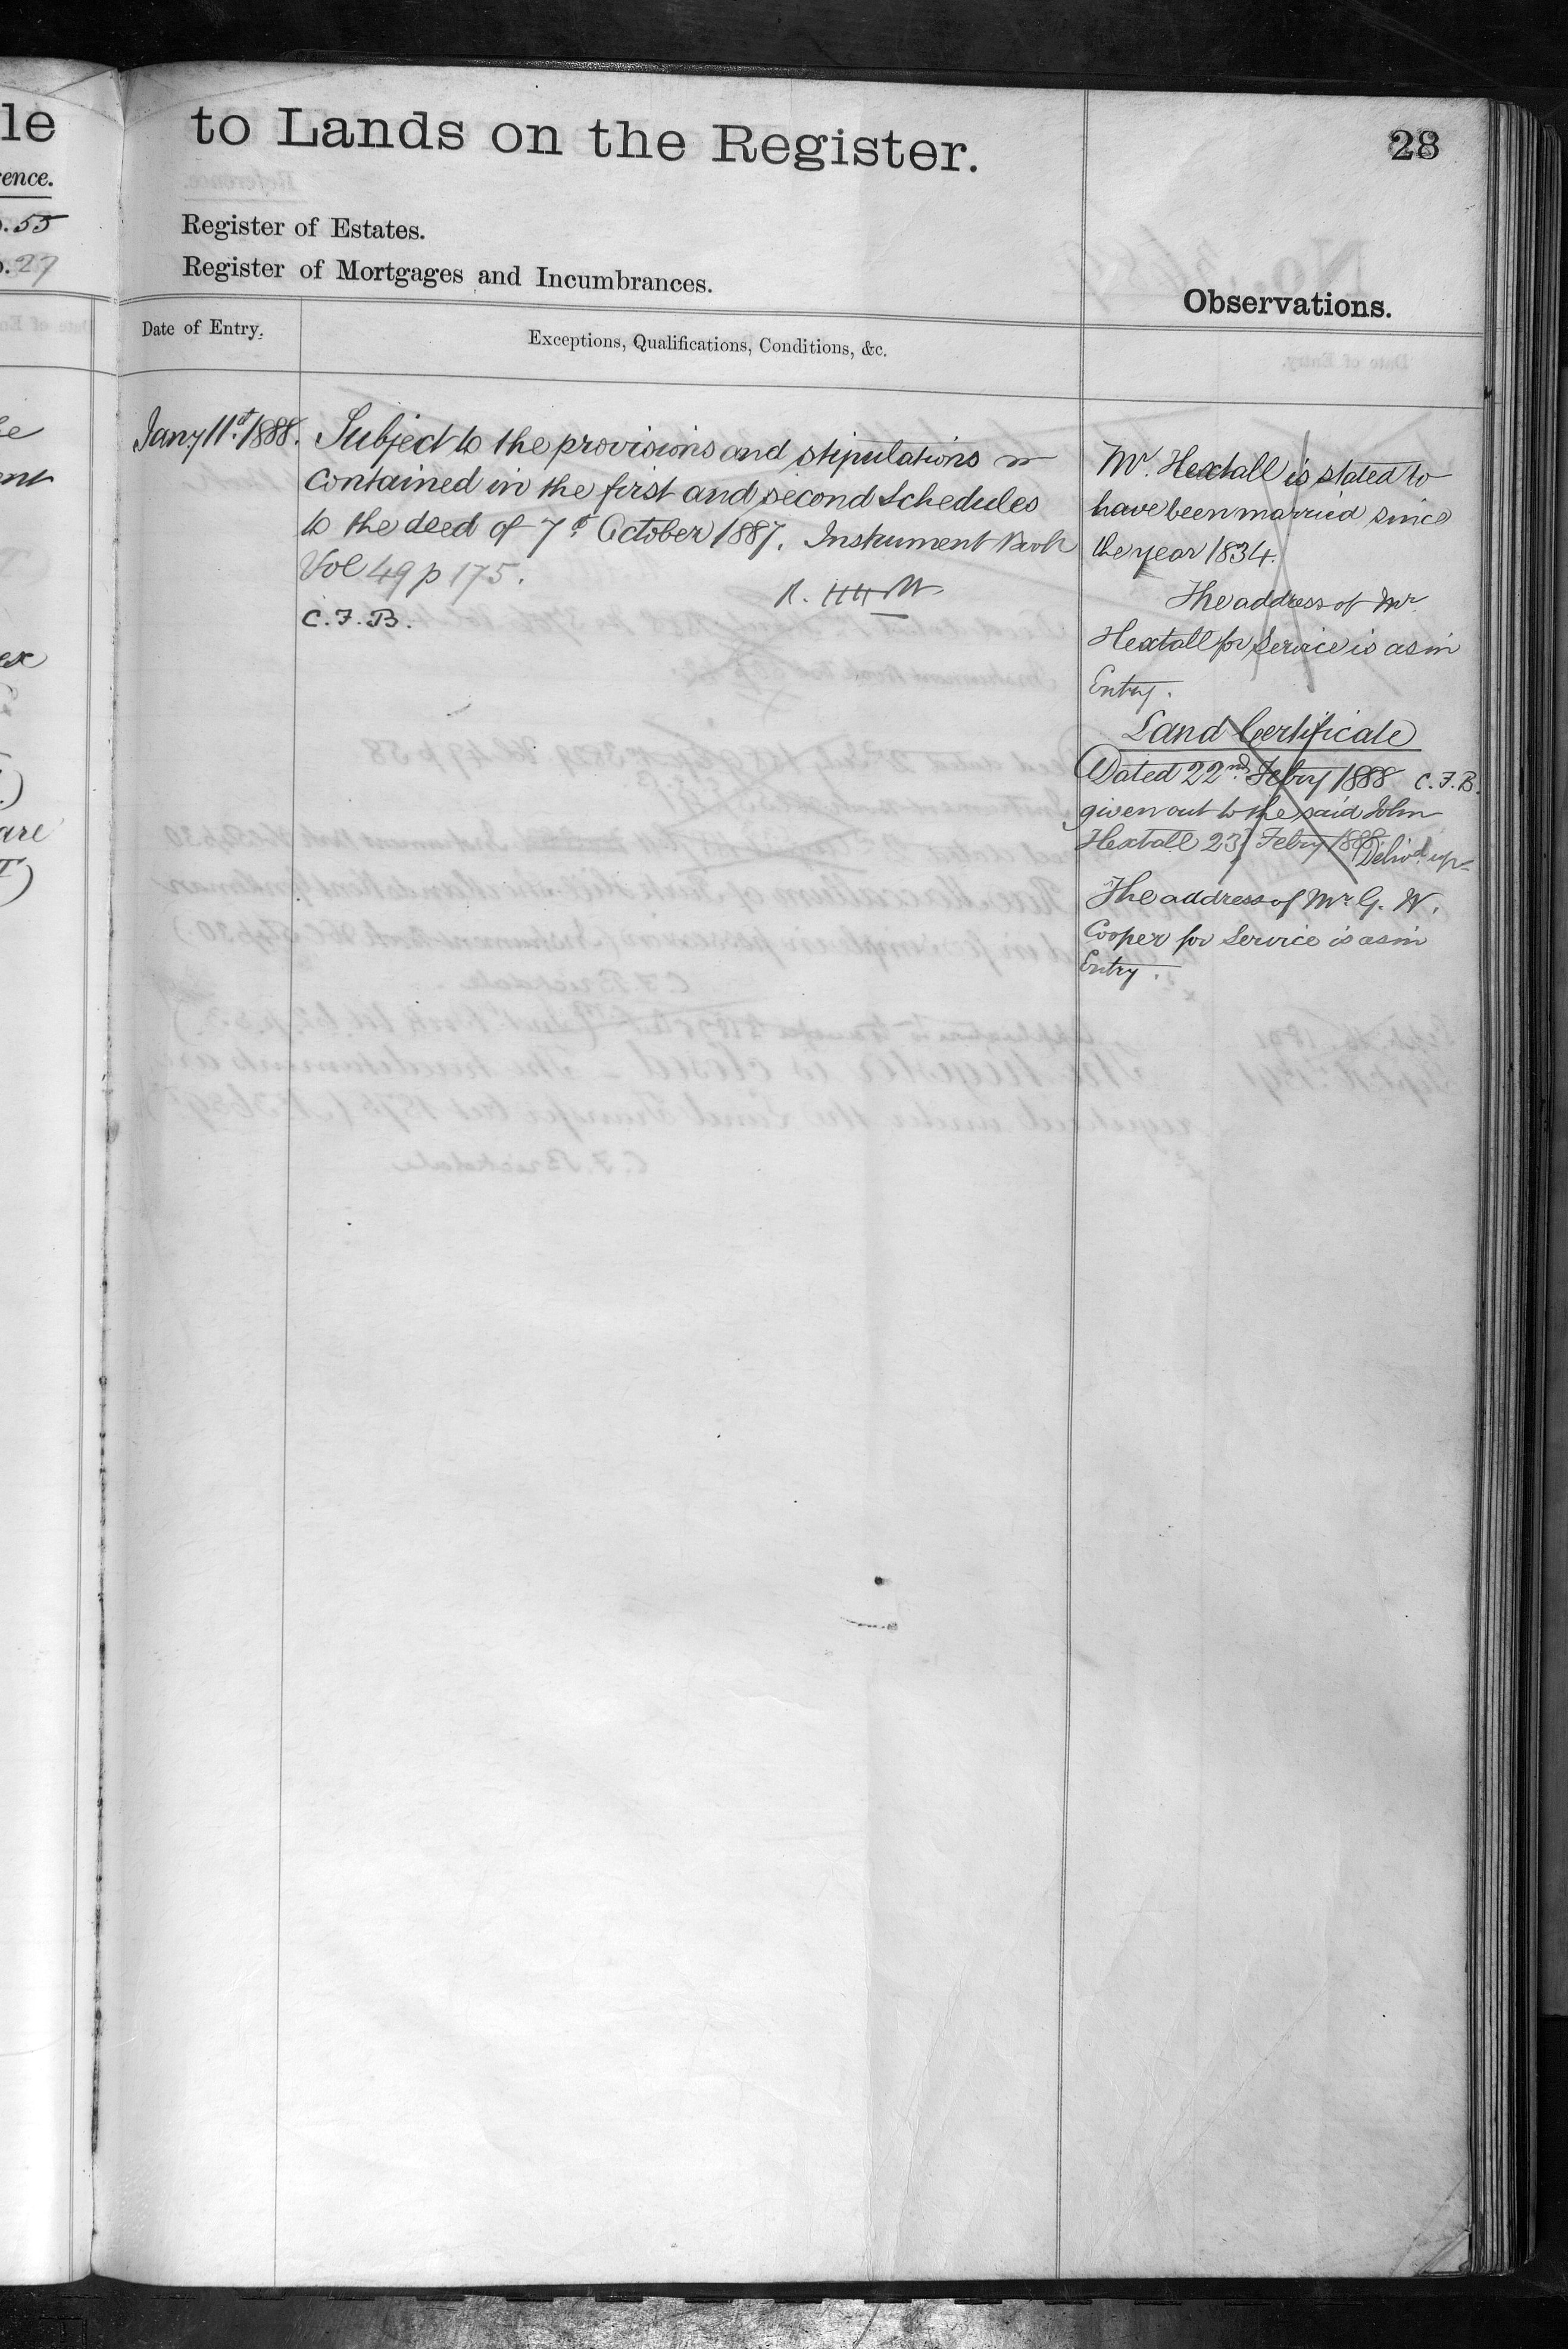 le
to Lands on the Register.
28
ence.
Register of Estates.
.55
Register of Mortgages and Incumbrances.
.27
Observations.
Date of Entry.
Exceptions, Qualifications, Conditions, &c.
Jany 11th 1888.
Subject to the provisions and stipulations
contained in the first and second Schedules
to the deed of 7th October 1887. Instrument Book
Vol 49 p 175.
C.F.B.
Mr. Hextall is stated to
have been married since
the year 1834.
The address of Mr
Hextall for Service is as in
Entry.
Land Certificate
Dated 22nd Febry 1888 C.F.B.
given out to the said John
Hextall 23 Febry 1888
Delivd up
The address of Mr G. W.
Cooper for Service is as in
Entry.
are